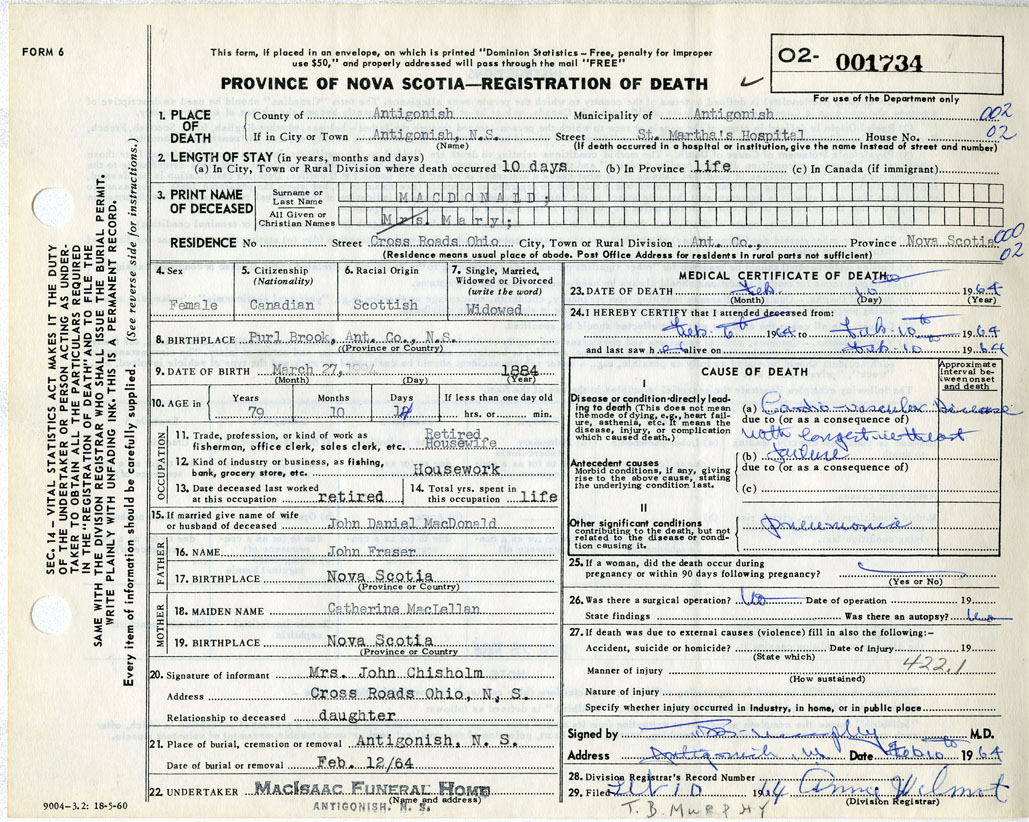 FORM 6
This form, if placed in an envelope, on which is printed "Dominion Statistics – Free, penalty for improper
use $50," and properly addressed will pass through the mail "FREE"
PROVINCE OF NOVA SCOTIA—REGISTRATION OF DEATH
02- 001734
For use of the Department only
1. PLACE OF DEATH { County of Antigonish Municipality of Antigonish 002
If in City or Town Antigonish, N.S. Street St. Martha's Hospital House No. 02
(Name) (If death occurred in a hospital or institution, give the name instead of street and number)
2. LENGTH OF STAY (in years, months and days)
(a) In City, Town or Rural Division where death occurred 10 days (b) In Province life (c) In Canada (if immigrant)
3. PRINT NAME OF DECEASED { Surname or Last Name MACDONALD;
All Given or Christian Names Mrs. Mary;
RESIDENCE No Street Cross Roads Ohio City, Town or Rural Division Ant. Co., Province Nova Scotia 000
02
(Residence means usual place of abode. Post Office Address for residents in rural parts not sufficient)
4. Sex
Female
5. Citizenship
(Nationality)
Canadian
6. Racial Origin
Scottish
7. Single, Married,
Widowed or Divorced
(write the word)
Widowed
8. BIRTHPLACE Purl Brook, Ant. Co., N.S.
(Province or Country)
9. DATE OF BIRTH March 27, 1884 1884
(Month) (Day) (Year)
10. AGE in { Years Months Days If less than one day old
79 10 hrs. or min.
OCCUPATION
11. Trade, profession, or kind of work as Retired
fisherman, office clerk, sales clerk, etc. Housewife
12. Kind of industry or business, as fishing,
bank, grocery store, etc. Housework
13. Date deceased last worked
at this occupation retired
14. Total yrs. spent in
this occupation life
15. If married give name of wife
or husband of deceased John Daniel MacDonald
FATHER
16. NAME John Fraser
17. BIRTHPLACE Nova Scotia
(Province or Country)
MOTHER
18. MAIDEN NAME Catherine MacLellan
19. BIRTHPLACE Nova Scotia
(Province or Country
20. Signature of informant Mrs. John Chisholm
Address Cross Roads Ohio, N. S.
Relationship to deceased daughter
21. Place of burial, cremation or removal Antigonish, N. S.
Date of burial or removal Feb. 12/64
22. UNDERTAKER MACISAAC FUNERAL HOME
(Name and address)
ANTIGONISH, N. S.
9004-3.2: 18-5-60
MEDICAL CERTIFICATE OF DEATH
23. DATE OF DEATH Feb. 10 th 1964
(Month) (Day) (Year)
24. I HEREBY CERTIFY that I attended deceased from:
Feb. 6th 1964 to Feb. 10th 1964
and last saw her alive on Feb. 10 1964
CAUSE OF DEATH
Approximate
interval be-
tween onset
and death
I
Disease or condition-directly lead-
ing to death (This does not
mean the mode of dying, e.g., heart fail-
ure, asthenia, etc. It means the
disease, injury, or complication
which caused death.)
(a) Cardio-vascular Disease
due to (or as a consequence of)
with congestive heart
(b) failure
due to (or as a consequence of)
(c)
Antecedent causes
Morbid conditions, if any, giving
rise to the above cause, stating
the underlying condition last.
II
Other significant conditions
contributing to the death, but not
related to the disease or condi-
tion causing it.
pneumonia
25. If a woman, did the death occur during
pregnancy or within 90 days following pregnancy?
(Yes or No)
26. Was there a surgical operation? No Date of operation 19
State findings Was there an autopsy? No
27. If death was due to external causes (violence) fill in also the following:–
Accident, suicide or homicide? Date of injury 19
(State which) 422.1
Manner of injury
(How sustained)
Nature of injury
Specify whether injury occurred in Industry, in home, or in public place
Signed by T.B. Murphy M.D.
Address Antigonish, NS Date Feb 10th 1964
28. Division Registrar's Record Number
29. Filed Feb 10 1964 Anna Wilmot
(Division Registrar)
T. B. MURPHY
SEC. 14 – VITAL STATISTICS ACT MAKES IT THE DUTY
OF THE UNDERTAKER OR PERSON ACTING AS UNDER-
TAKER TO OBTAIN ALL THE PARTICULARS REQUIRED
IN THE "REGISTRATION OF DEATH" AND TO FILE THE
SAME WITH THE DIVISION REGISTRAR WHO SHALL ISSUE THE BURIAL PERMIT.
WRITE PLAINLY WITH UNFADING INK. THIS IS A PERMANENT RECORD.
Every item of information should be carefully supplied. (See reverse side for instructions.)